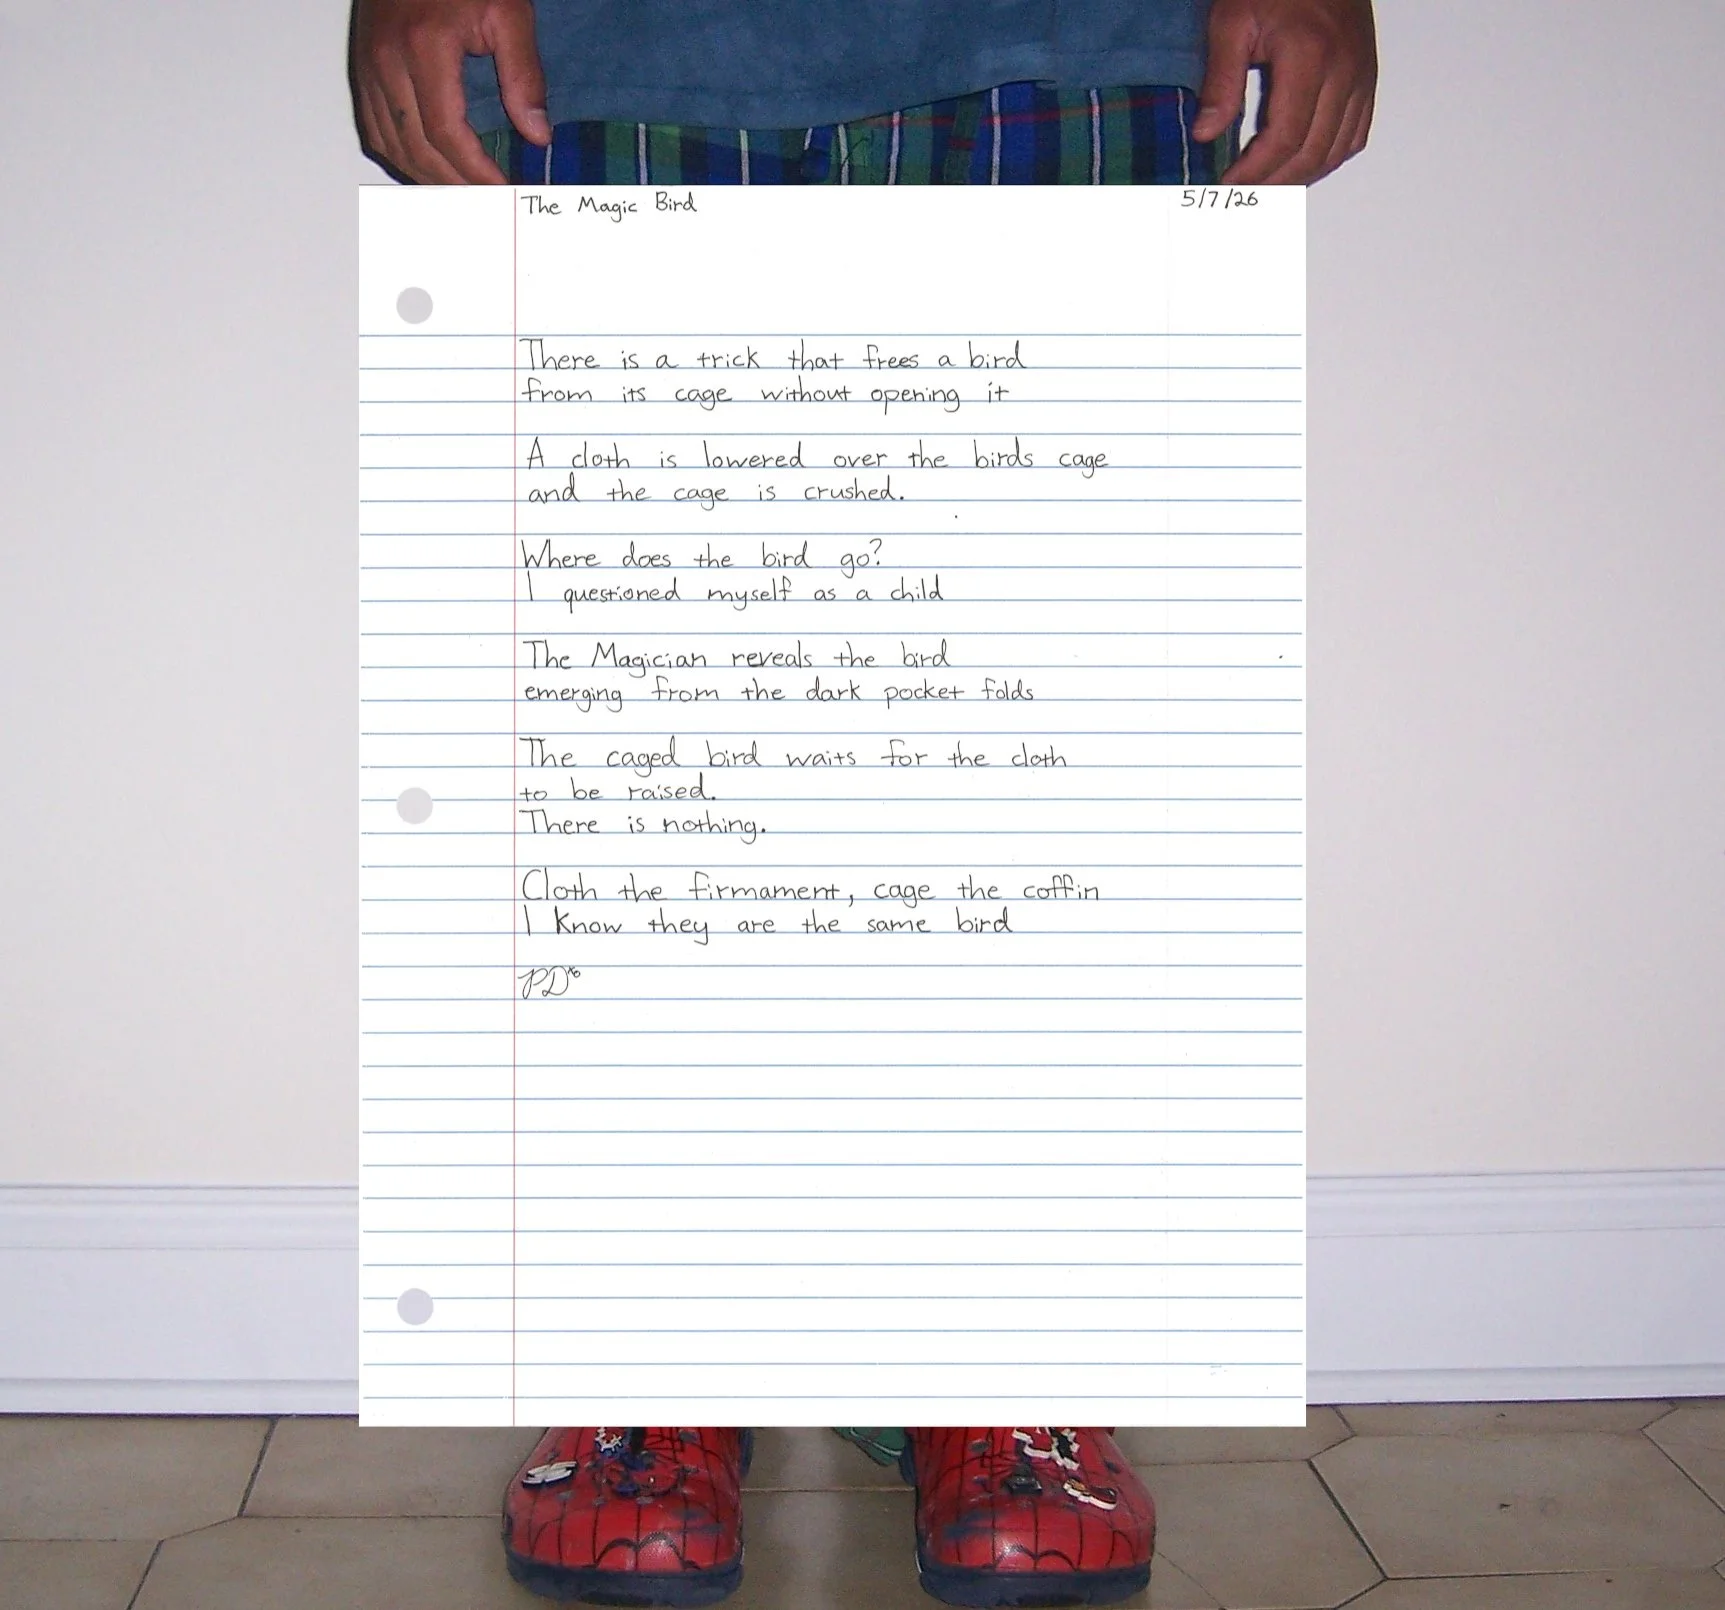 The Magic Bird
5/7/26
There is a trick that frees a bird
from its cage without opening it
A cloth is lowered over the birds cage
and the cage is crushed.
Where does the bird go?
I questioned myself as a child
The Magician reveals the bird
emerging from the dark pocket folds
The caged bird waits for the cloth
to be raised.
There is nothing.
Cloth the firmament, cage the coffin
I know they are the same bird
PD